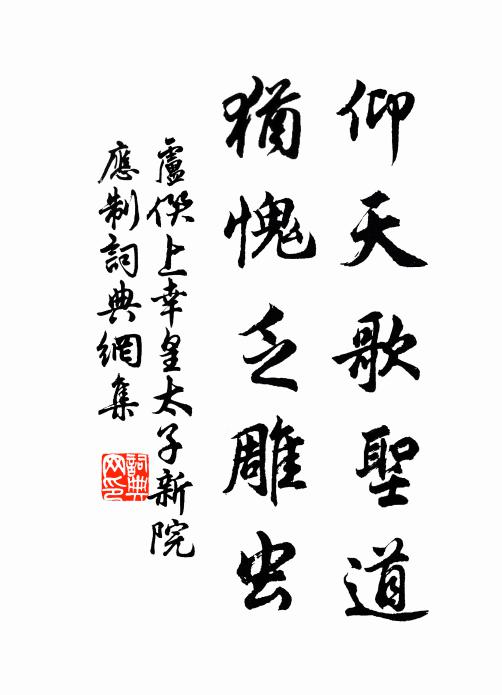 仰天歌聖道
猶愧乏雕虫
盧僎上幸皇太子新院
應制詞典網集
詞典
网印